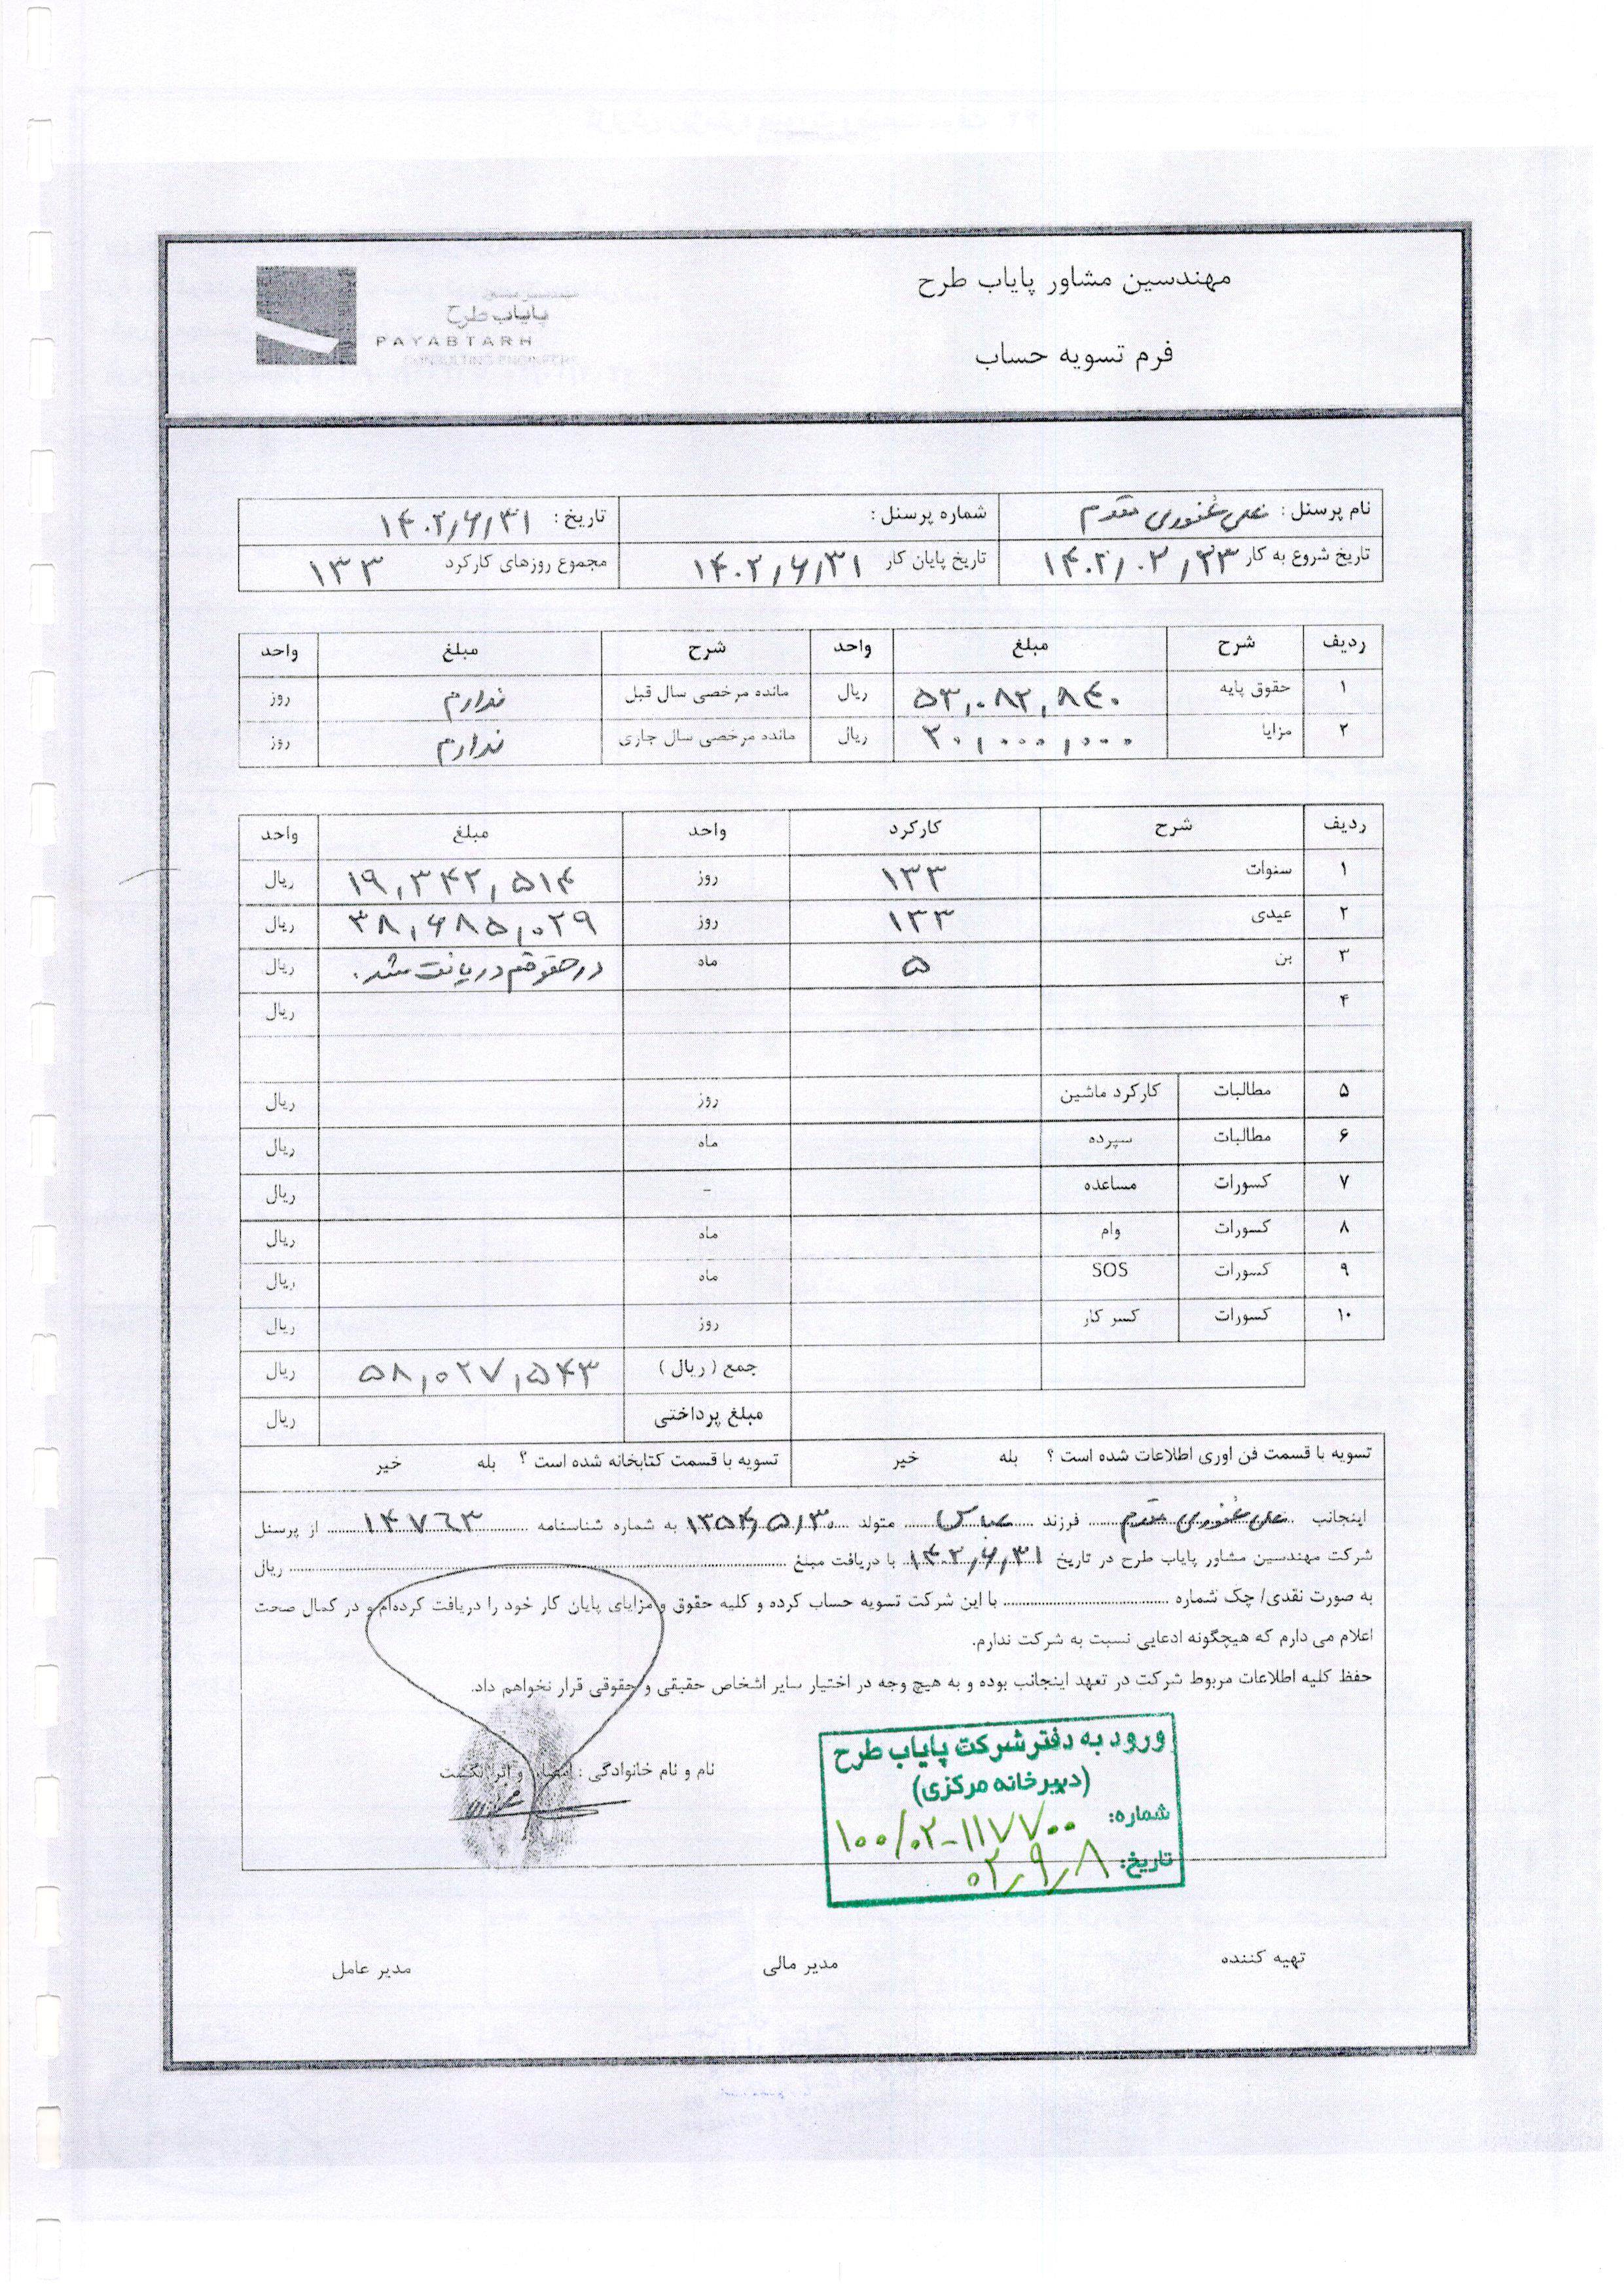 مهندسین مشاور پایاب طرح
پایاب طرح
PAYABTARH
CONSULTING ENGINEERS
فرم تسویه حساب
نام پرسنل : علی غفوری مقدم شماره پرسنل : تاریخ : ۱۴۰۲/۶/۳۱
تاریخ شروع به کار ۱۴۰۲/۰۲/۲۳ تاریخ پایان کار ۱۴۰۲/۶/۳۱ مجموع روزهای کارکرد ۱۳۳
ردیف شرح مبلغ واحد شرح مبلغ واحد
۱ حقوق پایه ۵۳,۰۸۲,۸۴۰ ریال مانده مرخصی سال قبل ندارم روز
۲ مزایا ۲۰,۰۰۰,۰۰۰ ریال مانده مرخصی سال جاری ندارم روز
ردیف شرح کارکرد واحد مبلغ واحد
۱ سنوات ۱۳۳ روز ۱۹,۳۴۲,۵۱۴ ریال
۲ عیدی ۱۳۳ روز ۳۸,۶۸۵,۰۲۹ ریال
۳ بن ۵ ماه در حقوقم دریافت شد. ریال
۴ ریال
۵ مطالبات کارکرد ماشین روز ریال
۶ مطالبات سپرده ماه ریال
۷ کسورات مساعده - ریال
۸ کسورات وام ماه ریال
۹ کسورات SOS ماه ریال
۱۰ کسورات کسر کار روز ریال
جمع ( ریال ) ۵۸,۰۲۷,۵۴۳ ریال
مبلغ پرداختی ریال
تسویه با قسمت فن اوری اطلاعات شده است ؟ بله خیر تسویه با قسمت کتابخانه شده است ؟ بله خیر
اینجانب علی غفوری مقدم فرزند عباس متولد ۱۳۵۴/۵/۳۰ به شماره شناسنامه ۱۴۷۶۳ از پرسنل
شرکت مهندسین مشاور پایاب طرح در تاریخ ۱۴۰۲/۶/۳۱ با دریافت مبلغ ریال
به صورت نقدی/ چک شماره با این شرکت تسویه حساب کرده و کلیه حقوق و مزایای پایان کار خود را دریافت کرده‌ام و در کمال صحت
اعلام می دارم که هیچگونه ادعایی نسبت به شرکت ندارم.
حفظ کلیه اطلاعات مربوط شرکت در تعهد اینجانب بوده و به هیچ وجه در اختیار سایر اشخاص حقیقی و حقوقی قرار نخواهم داد.
نام و نام خانوادگی : امضاء و اثر انگشت
ورود به دفتر شرکت پایاب طرح
(دبیرخانه مرکزی)
شماره: ۱۰۰/۰۲-۱۱۷۷۰۰
تاریخ: ۰۲/۹/۸
تهیه کننده مدیر مالی مدیر عامل